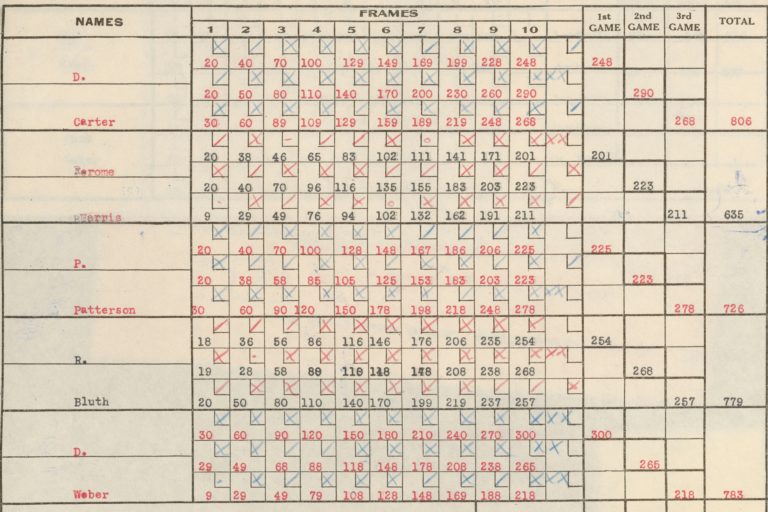 NAMES FRAMES 1st GAME 2nd GAME 3rd GAME TOTAL
1 2 3 4 5 6 7 8 9 10
20 40 70 100 129 149 169 199 228 248 248
D.
20 50 80 110 140 170 200 230 260 290 290
Carter 30 60 89 109 129 159 189 219 248 268 268 806
20 38 46 65 83 102 111 141 171 201 201
Karome
20 40 70 96 116 135 155 183 203 223 223
Harris 9 29 49 76 94 102 132 162 191 211 211 635
20 40 70 100 128 148 167 186 206 225 225
P.
20 38 58 85 105 125 153 183 203 223 223
Patterson 30 60 90 120 150 178 198 218 248 278 278 726
18 36 56 86 116 146 176 206 235 254 254
R.
19 28 58 208 238 268 268
Bluth 20 50 80 110 140 170 199 219 237 257 257 779
30 60 90 120 150 180 210 240 270 300 300
D.
29 49 68 88 118 148 178 208 238 265 265
Weber 9 29 49 79 108 128 148 169 188 218 218 783